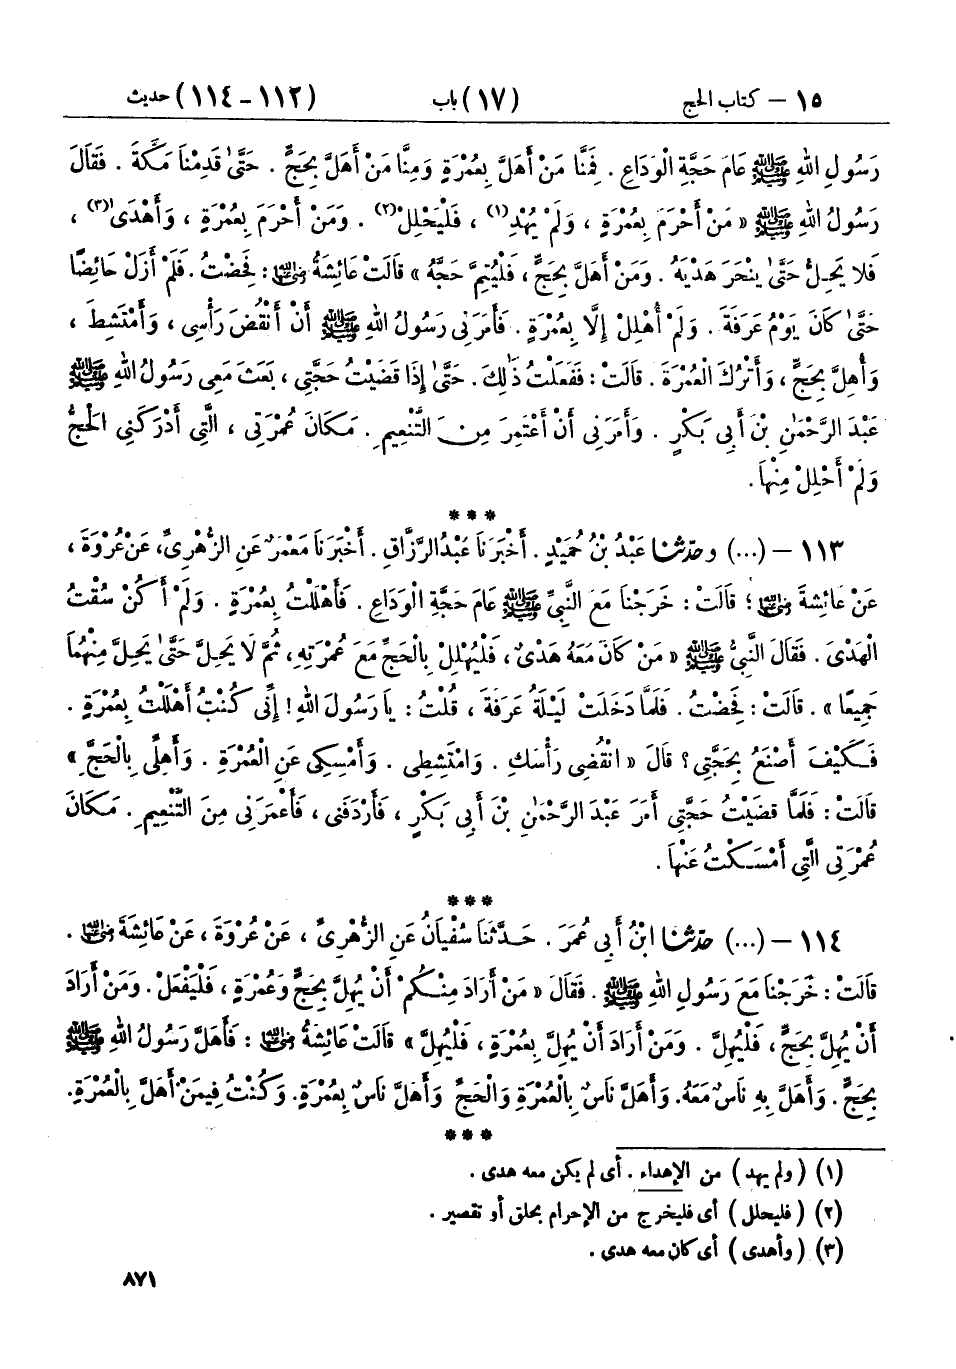 ١٥ – كتاب الحج (١٧) باب (١١٢-١١٤) حديث
رَسُولِ اللهِ ﷺ عَامَ حَجَّةِ الْوَدَاعِ . فَمِنَّا مَنْ أَهَلَّ بِعُمْرَةٍ وَمِنَّا مَنْ أَهَلَّ بِحَجٍّ . حَتَّىٰ قَدِمْنَا مَكَّةَ . فَقَالَ
رَسُولُ اللهِ ﷺ « مَنْ أَحْرَمَ بِعُمْرَةٍ ، وَلَمْ يُهْدِ(١) ، فَلْيَحْلِلْ(٢) . وَمَنْ أَحْرَمَ بِعُمْرَةٍ ، وَأَهْدَىٰ(٣) ،
فَلَا يَحِلُّ حَتَّىٰ يَنْحَرَ هَدْيَهُ . وَمَنْ أَهَلَّ بِحَجٍّ ، فَلْيُتِمَّ حَجَّهُ » قَالَتْ عَائِشَةُ رضي الله عنها : فَحِضْتُ . فَلَمْ أَزَلْ حَائِضًا
حَتَّىٰ كَانَ يَوْمُ عَرَفَةَ . وَلَمْ أُهْلِلْ إِلَّا بِعُمْرَةٍ . فَأَمَرَنِي رَسُولُ اللهِ ﷺ أَنْ أَنْقُضَ رَأْسِي ، وَأَمْتَشِطَ ،
وَأُهِلَّ بِحَجٍّ ، وَأَتْرُكَ الْعُمْرَةَ . قَالَتْ : فَفَعَلْتُ ذَٰلِكَ . حَتَّىٰ إِذَا قَضَيْتُ حَجَّتِي ، بَعَثَ مَعِي رَسُولُ اللهِ ﷺ
عَبْدَ الرَّحْمَٰنِ بْنَ أَبِي بَكْرٍ . وَأَمَرَنِي أَنْ أَعْتَمِرَ مِنَ التَّنْعِيمِ . مَكَانَ عُمْرَتِي ، الَّتِي أَدْرَكَنِي الْحَجُّ
وَلَمْ أَحْلِلْ مِنْهَا .
***
١١٣ – (...) وحدّثنا عَبْدُ بْنُ حُمَيْدٍ . أَخْبَرَنَا عَبْدُ الرَّزَّاقِ . أَخْبَرَنَا مَعْمَرٌ عَنِ الزُّهْرِيِّ، عَنْ عُرْوَةَ ،
عَنْ عَائِشَةَ رضي الله عنها ؛ قَالَتْ : خَرَجْنَا مَعَ النَّبِيِّ ﷺ عَامَ حَجَّةِ الْوَدَاعِ . فَأَهْلَلْتُ بِعُمْرَةٍ . وَلَمْ أَكُنْ سُقْتُ
الْهَدْيَ . فَقَالَ النَّبِيُّ ﷺ « مَنْ كَانَ مَعَهُ هَدْيٌ ، فَلْيُهْلِلْ بِالْحَجِّ مَعَ عُمْرَتِهِ ، ثُمَّ لَا يَحِلُّ حَتَّىٰ يَحِلَّ مِنْهُمَا
جَمِيعًا » . قَالَتْ : فَحِضْتُ . فَلَمَّا دَخَلَتْ لَيْلَةُ عَرَفَةَ ، قُلْتُ : يَا رَسُولَ اللهِ! إِنِّي كُنْتُ أَهْلَلْتُ بِعُمْرَةٍ .
فَكَيْفَ أَصْنَعُ بِحَجَّتِي ؟ قَالَ « انْقُضِي رَأْسَكِ . وَامْتَشِطِي . وَأَمْسِكِي عَنِ الْعُمْرَةِ . وَأَهِلِّي بِالْحَجِّ »
قَالَتْ : فَلَمَّا قَضَيْتُ حَجَّتِي أَمَرَ عَبْدَ الرَّحْمَٰنِ بْنَ أَبِي بَكْرٍ ، فَأَرْدَفَنِي ، فَأَعْمَرَنِي مِنَ التَّنْعِيمِ . مَكَانَ
عُمْرَتِي الَّتِي أَمْسَكْتُ عَنْهَا .
***
١١٤ – (...) حدّثنا ابْنُ أَبِي عُمَرَ . حَدَّثَنَا سُفْيَانُ عَنِ الزُّهْرِيِّ ، عَنْ عُرْوَةَ ، عَنْ عَائِشَةَ رضي الله عنها .
قَالَتْ : خَرَجْنَا مَعَ رَسُولِ اللهِ ﷺ . فَقَالَ « مَنْ أَرَادَ مِنْكُمْ أَنْ يُهِلَّ بِحَجٍّ وَعُمْرَةٍ ، فَلْيَفْعَلْ . وَمَنْ أَرَادَ
أَنْ يُهِلَّ بِحَجٍّ ، فَلْيُهِلَّ . وَمَنْ أَرَادَ أَنْ يُهِلَّ بِعُمْرَةٍ ، فَلْيُهِلَّ » قَالَتْ عَائِشَةُ رضي الله عنها : فَأَهَلَّ رَسُولُ اللهِ ﷺ
بِحَجٍّ . وَأَهَلَّ بِهِ نَاسٌ مَعَهُ. وَأَهَلَّ نَاسٌ بِالْعُمْرَةِ وَالْحَجِّ وَأَهَلَّ نَاسٌ بِعُمْرَةٍ. وَكُنْتُ فِيمَنْ أَهَلَّ بِالْعُمْرَةِ.
***
(١) ( ولم يهد ) من الإهداء . أى لم يكن معه هدى .
(٢) ( فليحلل ) أى فليخرج من الإحرام بحلق أو تقصير .
(٣) ( وأهدى ) أى كان معه هدى .
٨٧١